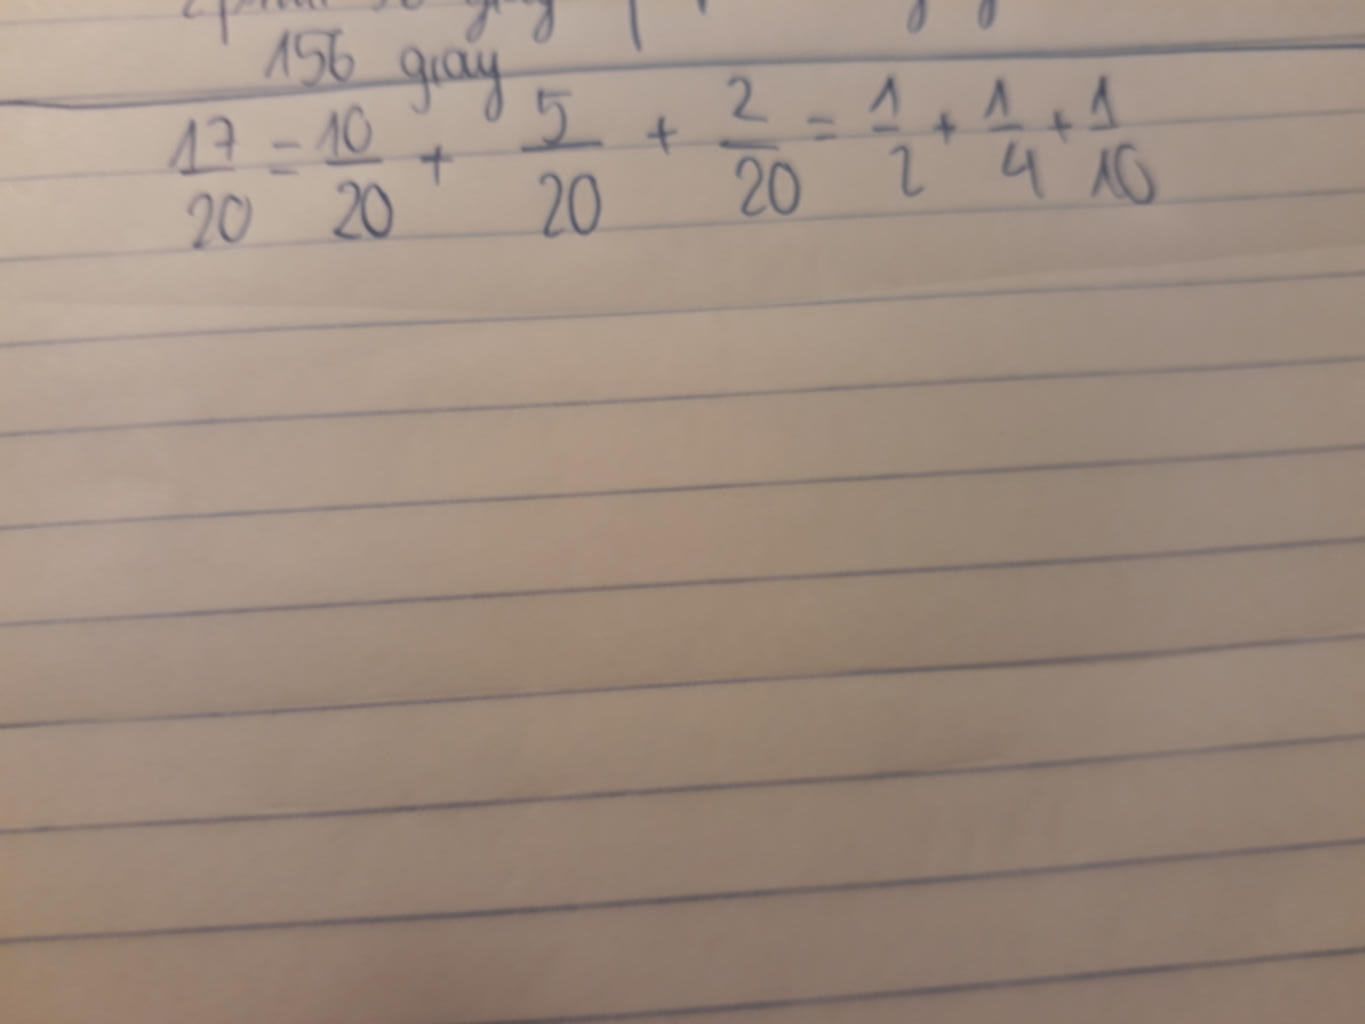 156 giây
17/20 = 10/20 + 5/20 + 2/20 = 1/2 + 1/4 + 1/10